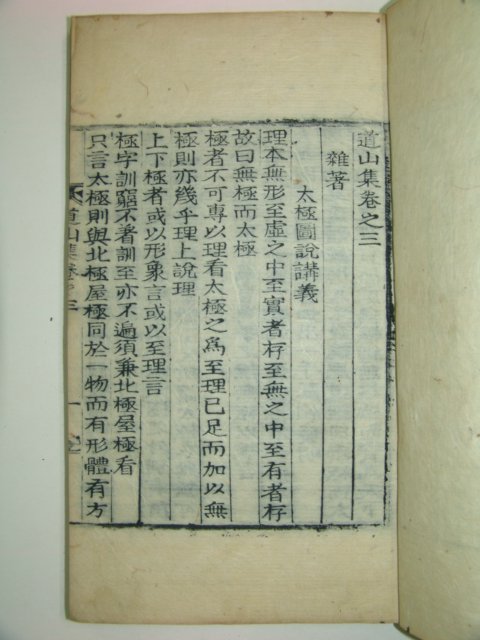 道山集卷之三
雜著
太極圖說講義
理本無形至虛之中至實者存至無之中至有者存
故曰無極而太極
極者不可專以理看太極之爲至理已足而加以無
極則亦幾乎理上說理
上下極者或以形象言或以至理言
極字訓窮不著訓至亦不遍須兼北極屋極看
只言太極則與北極屋極同於一物而有形體有方
道山集卷之三
一